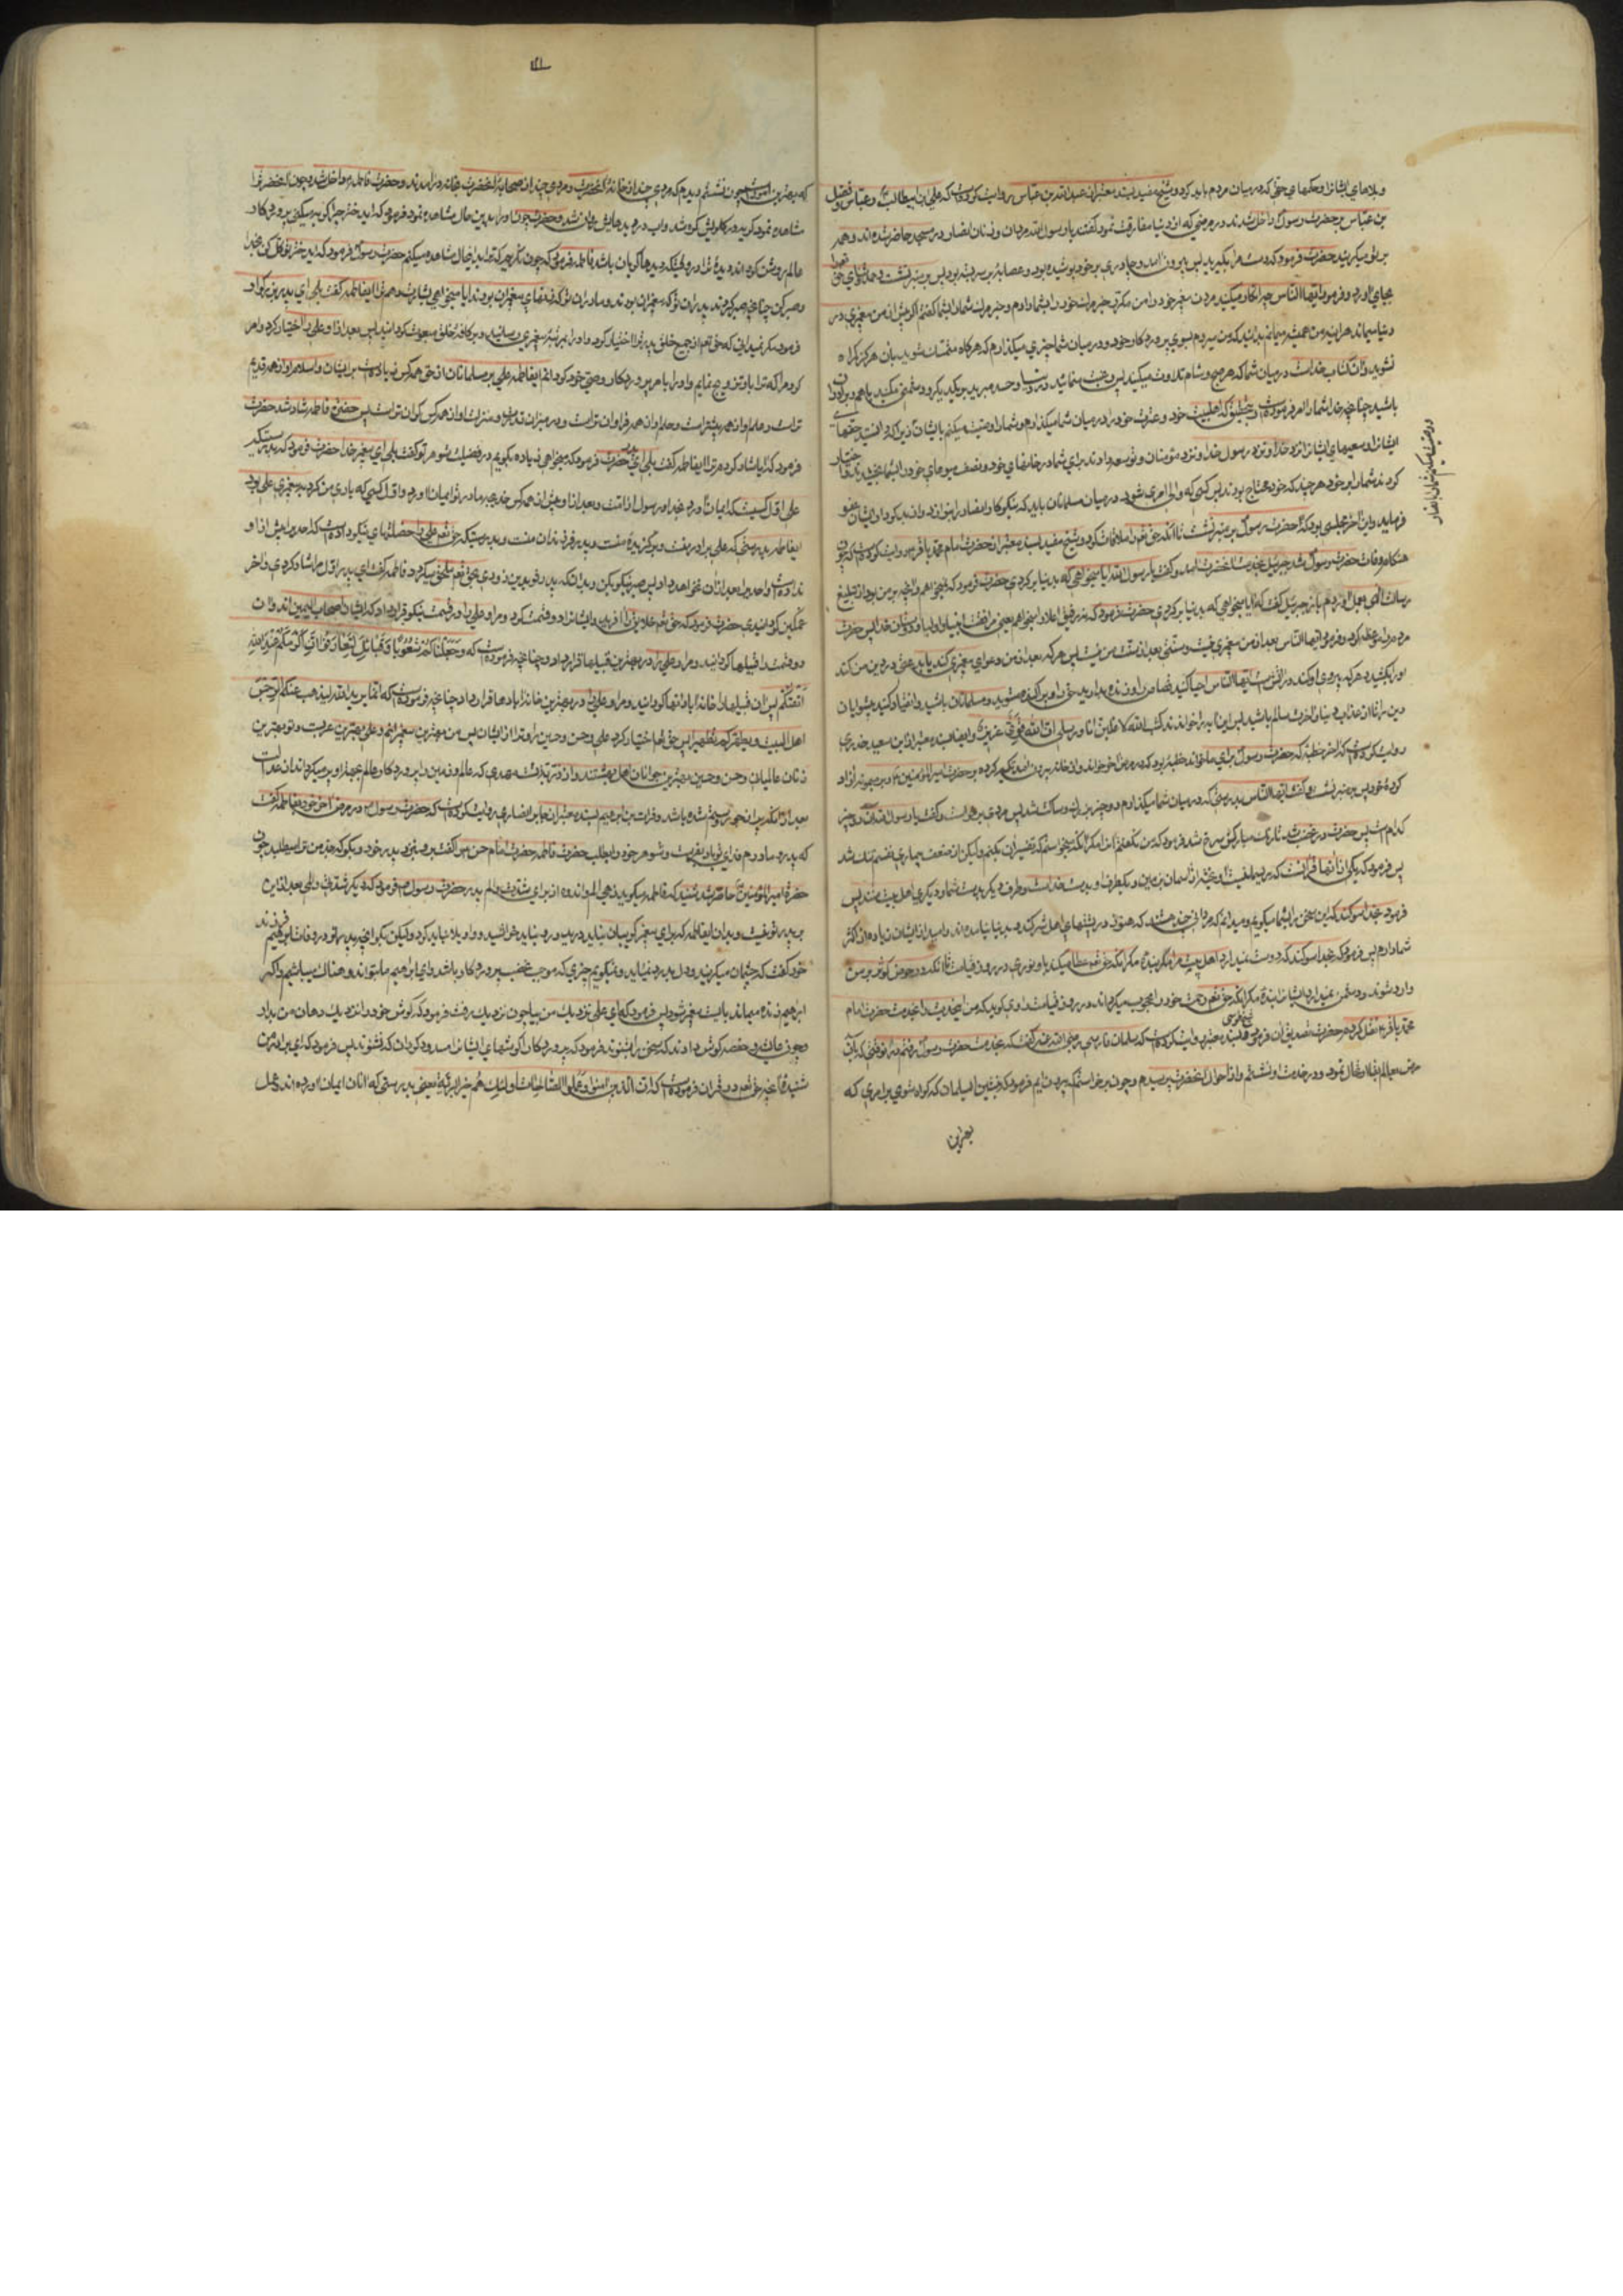 و بلاهای ایشانرا و حکمهای حقی که در میان مردم باید کرد و شیخ مفید بسند معتبر از عبدالله بن عباس روایت کرده است که علی بن ابیطالب و عباس و فضل
بن عباس بر حضرت رسول داخل شدند در مرضی که از دنیا مفارقت نمود گفتند یا رسول الله مردان و زنان انصار در مسجد حاضر شده اند و همه
بر تو میگریند حضرت فرمود که دست مرا بگیرید پس بیرون آمد و چادری بر خود پوشیده بود و عصابه بر سر بسته بود پس بر منبر نشست و حمد و ثنای حق تعالی
بجای آورد و فرمود ایها الناس چرا انکار میکنید مردن پیغمبر خود را من مکرر خبر مرگ خود را بشما دادم و خبر مرگ شما را بشما گفتم اگر پیش از من پیغمبری در
دنیا میماند هر آینه من همیشه میماندم بدانید که من میروم بسوی پروردگار خود و در میان شما چیزی میگذارم که هرگاه متمسک شوید بان هرگز گمراه
نشوید و آن کتاب خداست در میان شما که هر صبح و شام تلاوت میکنید پس رغبت منمائید در دنیا و حسد مبرید بر یکدیگر و دشمنی مکنید با هم و برادران
باشید چنانچه خدا شما را امر فرموده است و بتحقیق که اهلبیت خود و عترت خود را در میان شما میگذارم و شما را وصیت میکنم بایشان
و وصیت میکنم شما را بانصار
ایشانرا و سعیهای ایشانرا نزد خدا و نزد رسول خدا و نزد مؤمنان و توسعه دادند برای شما در خانهای خود و نصف میوهای خود را بشما بخشیدند و اختیار
کردند شما را بر خود هر چند که خود محتاج بودند پس کسی که والی امری شود در میان مسلمانان باید که نیکوکار انصار را بنوازد و از بدکردار ایشان عفو
فرماید و این آخر مجلسی بود که آنحضرت بر منبر نشست تا آنکه حق تعالی را ملاقات کرد و شیخ مفید بسند معتبر از حضرت امام محمد باقر روایت کرده است که چون
هنگام وفات حضرت رسول شد جبرئیل بخدمت آنحضرت آمد و گفت یا رسول الله آیا میخواهی که بدنیا برگردی حضرت فرمود که نمیخواهم و آنچه بر من بود از تبلیغ
رسالت الهی بعمل آوردم باز جبرئیل گفت که آیا میخواهی که بدنیا برگردی حضرت فرمود که نه رفیق اعلا را میخواهم یعنی مرافقت انبیا و اولیا و دوستان خدا پس حضرت
مردم را موعظه کرد و فرمود ایها الناس بعد از من پیغمبری نیست و سنتی بعد از سنت من نیست پس هر که بعد از من دعوای پیغمبری کند یا بدعتی در دین من کند
او را بکشید و هر که پیروی او کند در آتش است ایها الناس احیا کنید قصاص را و زنده بدارید حق را و پراکنده مشوید و مسلمانان باشید و انقیاد کنید پیشوایان
دین را تا از عذاب دنیا و آخرت سالم باشید پس این آیه را خواندند کتب الله لاغلبن انا و رسلی ان الله قوی عزیز و ایضا بسند معتبر از ابی سعید خدری
روایت کرده است که آخر خطبه که حضرت رسول برای ما خواند خطبه بود که در مرض آخر خواند و از خانه بیرون آمد تکیه کرده بر حضرت امیرالمؤمنین و بر میمونه آزاد
کرده خود پس بر منبر نشست و گفت ایها الناس بدرستی که در میان شما میگذارم دو چیز بزرگ و ساکت شد پس مردی برخاست و گفت یا رسول الله آن دو چیز
کدام است پس حضرت در غضب شد تا رنگ مبارکش سرخ شد فرمود که من نگفتم آنرا مگر آنکه میخواستم که تفسیر آن بکنم و لیکن از ضعف بیماری نفسم تنگ شد
پس فرمود که یکی از آنها قرآنست که ریسمانیست آویخته از آسمان بزمین و یکطرف او بدست خداست و طرف دیگر بدست شما و دیگری اهل بیت منند پس
فرمود بخدا سوگند که این سخن را بشما میگویم و میدانم که مردانی چند هستند که هنوز در پشتهای اهل شرکند و بدنیا نیامده اند و امید از ایشان زیاده از اکثر
شما دارم پس فرمود که بخدا سوگند که دوست نمیدارد اهل بیت مرا بنده مگر آنکه حق تعالی عطا میکند باو نوری در روز قیامت تا آنکه در حوض کوثر بر من
وارد شوند و دشمن نمیدارد ایشانرا بنده مگر آنکه حق تعالی رحمت خود را محجوب میگرداند در روز قیامت راوی گوید که من این حدیث را بخدمت حضرت امام
محمد باقر نقل کردم حضرت تصدیق آن فرمود و شیخ طوسی بسند معتبر روایت کرده است که سلمان فارسی رضی الله عنه گفت که بخدمت حضرت رسول رفتم در وقتی که بآن
مرض بعالم بقا ارتحال نمود و در خدمت او نشستم و از احوال آنحضرت پرسیدم و چون برخاستم که بیرون آیم فرمود که بنشین ای سلمان که گواه شوی بر امری که
بهترین
۱۱۱
که بهترین امور است چون نشستم دیدم که مردی چند از خانه آنحضرت و مردی چند از صحابه آنحضرت بخانه درآمدند و حضرت فاطمه داخل شد و چون آنحضرت را
مشاهده نمود گریه در گلویش گره شد و آب دیده بر رویش روان شد و حضرت چون او را بدین حال مشاهده نمود فرمود که ای دختر چرا گریه میکنی پروردگار
عالم روشن کند دیده ترا و دیگر دیدها گریان باشد فاطمه فرمود که چون نگریم که ترا بدین حال مشاهده میکنم حضرت رسول فرمود که ای دختر توکل کن بخدا
و صبر کن چنانچه صبر کردند پدران تو که پیغمبران بودند و مادران تو که زنهای پیغمبران بودند آیا میخواهی بشارت دهم ترا ای فاطمه گفت بلی ای پدر بزرگوار
فرمود مگر نمیدانی که حق تعالی از جمیع خلق پدر ترا اختیار کرد و او را بمرتبه پیغمبری رسانید و بر کافه خلق مبعوث گردانید پس بعد از او علی را اختیار کرد و امر
کرد مرا که ترا باو تزویج نمایم و او را بامر پروردگار وصی خود گردانم ای فاطمه علی بر مسلمانان از حق همه کس زیاده است بر ایشان و اسلام او از همه قدیم
تر است و علم او از همه بیشتر است و حلم او از همه فراوان تر است و در میزان قدر و منزلت او از همه کس گران تر است پس حضرت فاطمه شاد شد حضرت
فرمود که آیا شاد کردم ترا ای فاطمه گفت بلی ای پدر حضرت فرمود که میخواهی زیاده بگویم در فضیلت شوهر تو گفت بلی ای پیغمبر خدا حضرت فرمود که بدرستیکه
علی اول کسیست که ایمان آورد بخدا و رسول از این امت و بعد از او پیش از همه کس خدیجه مادر تو ایمان آورد و اول کسی که یاری من کرد بر پیغمبری علی بود
ای فاطمه بدرستی که علی برادر منست و برگزیده منست و پدر فرزندان منست و بدرستیکه حق تعالی بعلی خصلتهای نیکو داده است که احدی را پیش از او
نداده است و احدی را بعد از آن نخواهد داد پس صبر نیکو بکن و بدانکه پدرت بزودی بحق تعالی ملحق میگردد فاطمه گفت ای پدر اول مرا شاد کردی و آخر
غمگین گردانیدی حضرت فرمود که حق تعالی خلایق را آفرید و ایشانرا دو قسمت کرد و مرا و علی را در قسمت نیکو قرار داد که ایشان اصحاب الیمین اند و آن
دو قسمت را قبیلها گردانید و مرا و علی را در بهترین قبیلها قرار داد چنانچه فرموده است که و جعلناکم شعوبا و قبائل لتعارفوا ان اکرمکم عند الله
اتقیکم پس آن قبیلها را خانه آبادانها گردانید و مرا و علی را در بهترین خانه آبادانها قرار داد چنانچه فرموده است که انما یرید الله لیذهب عنکم الرجس
اهل البیت و یطهرکم تطهیرا پس حق تعالی مرا اختیار کرد و علی و حسن و حسین را و ترا از ایشان پس من بهترین پیغمبرانم و علی بهترین عربست و تو بهترین
زنان عالمیان و حسن و حسین بهترین جوانان اهل بهشتند و از ذریت تست مهدی که عالم و زمین را پروردگار عالم بسبب او پر میگرداند از عدالت
بعد از آنکه پر از جور و ستم شده باشد و فرات بن ابراهیم بسند معتبر از جابر انصاری روایت کرده است که حضرت رسول در مرض آخر خود بفاطمه گفت
که پدر و مادرم فدای تو باد بفرست و شوهر خود را بطلب حضرت فاطمه حضرت امام حسن را گفت برو بنزد پدر خود و بگو که جد من ترا میطلبد چون
حضرت امیرالمؤمنین حاضر شد شنید که فاطمه میگوید زهی الم و اندوه از برای شدت الم پدر حضرت رسول فرمود که دیگر شدت و المی بعد از این
بر پدر تو نیست و بدان ای فاطمه که برای پیغمبر گریبان نباید درید و رو نباید خراشید و واویلا نباید کرد و لیکن بگو آنچه پدر تو در وفات ابراهیم فرزند
خود گفت که چشمان میگریند و دل بدرد میآید و نمیگویم چیزی که موجب غضب پروردگار باشد و ای ابراهیم ما بتو اندوهناک میباشیم و اگر
ابراهیم زنده میماند بایست پیغمبر شود پس فرمود که ای علی نزدیک من بیا چون نزدیک رفت فرمود که گوش خود را نزدیک دهان من بدار
و چون عایشه و حفصه گوش دادند که سخن را بشنوند فرمود که پروردگارا گوشهای ایشانرا مسدود گردان که نشنوند پس فرمود که ای برادر من
شنیده آنچه حق تعالی در قرآن فرموده است که ان الذین امنوا و عملوا الصالحات اولئک هم خیر البریة یعنی بدرستی که آنان ایمان آورده اند و عمل